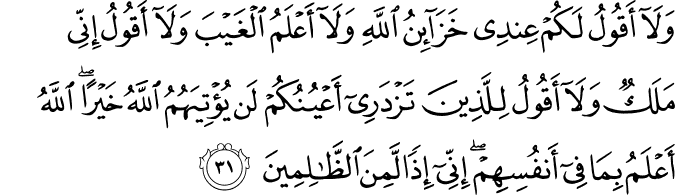 وَلَآ أَقُولُ لَكُمْ عِندِى خَزَآئِنُ ٱللَّهِ وَلَآ أَعْلَمُ ٱلْغَيْبَ وَلَآ أَقُولُ إِنِّى
مَلَكٌ وَلَآ أَقُولُ لِلَّذِينَ تَزْدَرِىٓ أَعْيُنُكُمْ لَن يُؤْتِيَهُمُ ٱللَّهُ خَيْرًا ۖ ٱللَّهُ
أَعْلَمُ بِمَا فِىٓ أَنفُسِهِمْ ۖ إِنِّىٓ إِذًا لَّمِنَ ٱلظَّـٰلِمِينَ ٣١